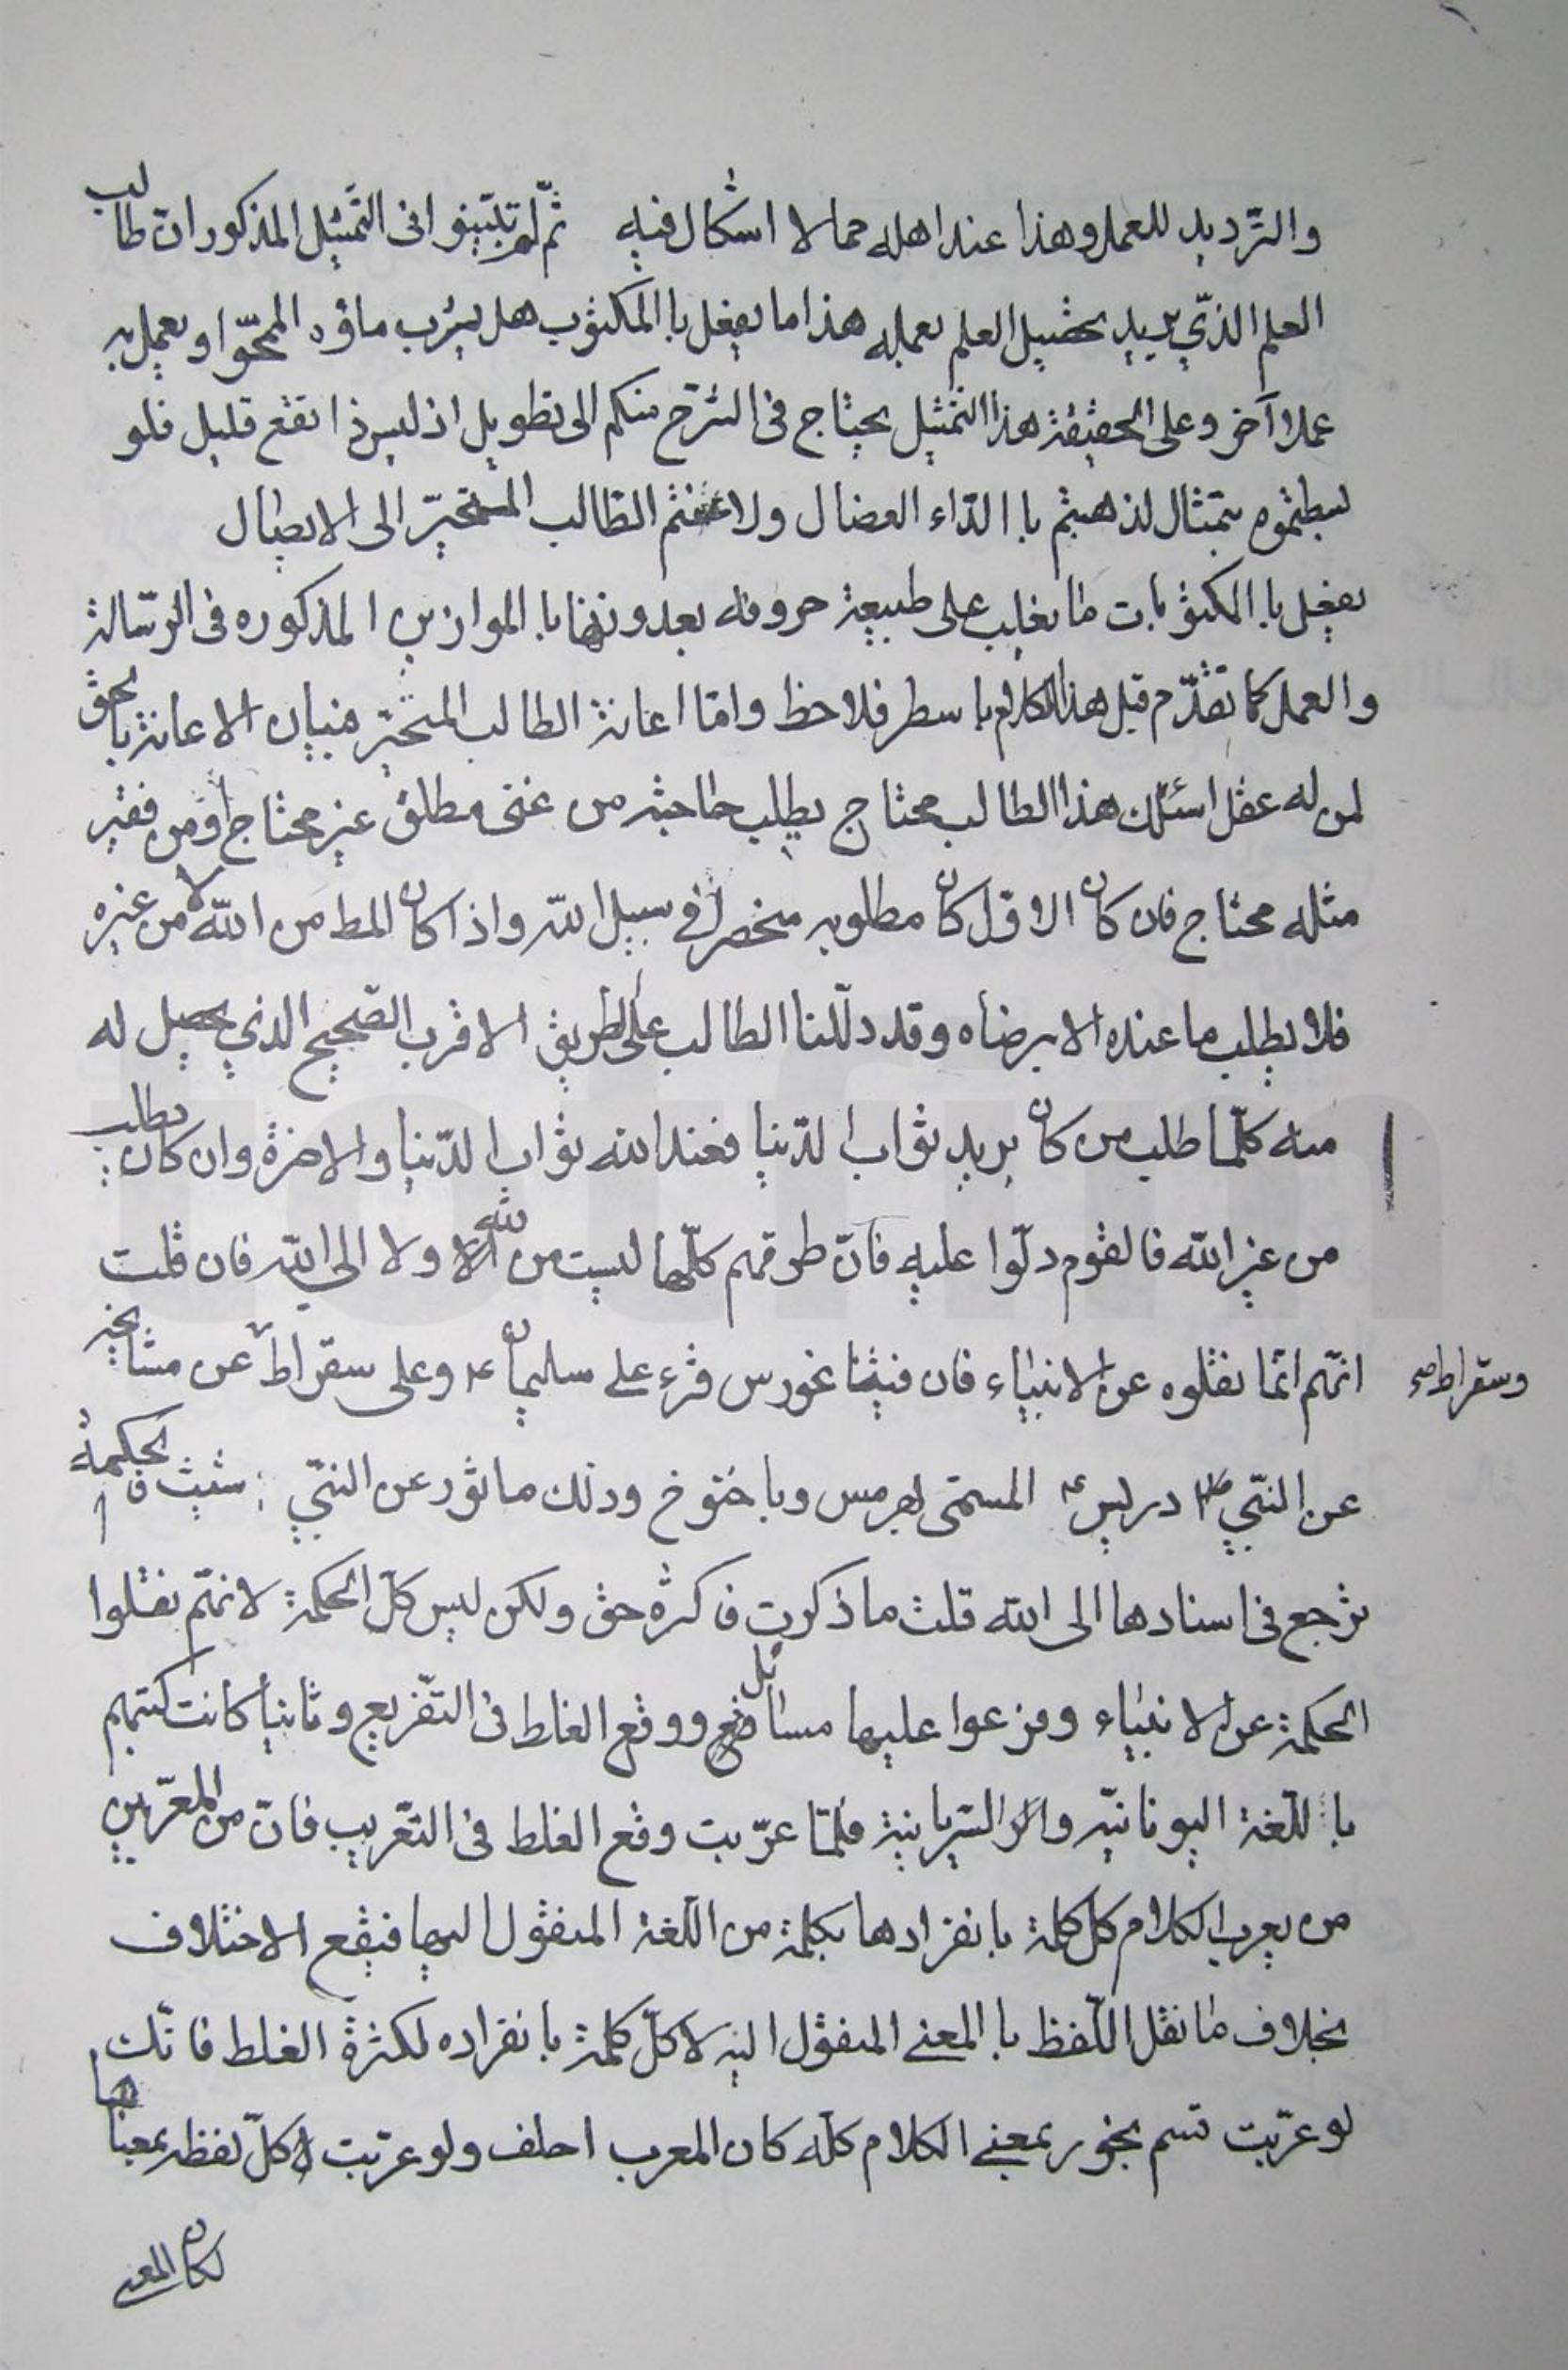 والترديد للعمل وهذا عند اهله مما لا اشكال فيه ثم لم تبينوا فى التمثيل المذكور ان طالب
العلم الذي يريد تحصيل العلم بعمله هذا ما يفعل با المكتوب هل يشرب ماؤه المحوّ او يعمل به
عملا آخر وعلى الحقيقة هذا التمثيل يحتاج فى الشرح منكم الى تطويل اذ ليس ذا نفع قليل فلو
بمثال لذهبتم با الداء العضال ولاعنتم الطالب المتحيّر الى الايصال
يفعل با المكتوبات ما يغلب على طبيعة حروفه بعد وزنها با الموازين المذكوره فى الرسالة
والعمل كما تقدّم قبل هذا الكلام با سطر فلاحظ وامّا اعانة الطالب المتحيّر فبيان الاعانة بالحق
لمن له عقل اسئلك هذا الطالب محتاج يطلب حاجته من غنى مطلق غير محتاج أو من فقير
مثله محتاج فان كان الاوّل كان مطلوبه منحصراً في سبيل الله واذا كان المط من الله لا من غيره
فلا يطلب ما عنده الا برضاه وقد دلّلنا الطالب على الطريق الاقرب الصحيح الذي يحصل له
منه كلّما طلب من كان يريد ثواب الدّنيا فعند الله ثواب الدّنيا والاخرة وان كان يطلب
من غير الله فالقوم دلّوا عليه فانّ طرقهم كلّها ليست من الله ولا الى الله فان قلت
انّهم انّما نقلوه عن الانبياء فان فيثاغورس قرء على سليمان ع وعلى سقراط عن مشايخه
وسقراط صح
عن النبي ادريس ع المسمّى بهرمس وبا خنوخ وذلك ماثور عن النبي شيث فالحكمة
ترجع فى اسنادها الى الله قلت ما ذكرت فاكثره حق ولكن ليس كل الحكمة لانهم نقلوا
الحكمة عن الانبياء وفرعوا عليها مسائل ووقع الغلط فى التفريع وثانياً كانت كتبهم
با للّغة اليونانيّه والسّريانية فلمّا عرّبت وقع الغلط فى التعريب فانّ من المعرّبين
من يعرب الكلام كل كلمة بانفرادها بكلمة من اللّغة المنقول اليها فيقع الاختلاف
بخلاف ما نقل اللّفظ با المعنى المنقول اليه لا كلّ كلمة بانفراده لكثرة الغلط فانّك
لو عرّبت بمعنى الكلام كلّه كان المعرب ولو عرّبت كلّ لفظه بمعناها
لكان المعنى